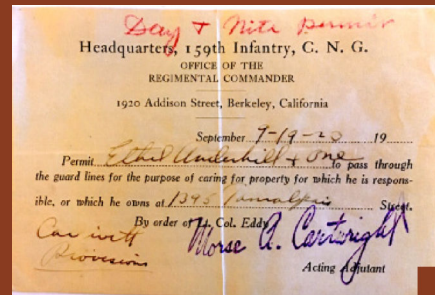 Day + Nite Permit
Headquarters, 159th Infantry, C. N. G.
OFFICE OF THE
REGIMENTAL COMMANDER
1920 Addison Street, Berkeley, California
September 9-19-23 19
Permit Ethel Underhill + one to pass through
the guard lines for the purpose of caring for property for which he is respons-
ible, or which he owns at 1395 Street.
By order of Lt. Col. Eddy
Car with
Provisions
Morse A. Cartwright
Acting Adjutant